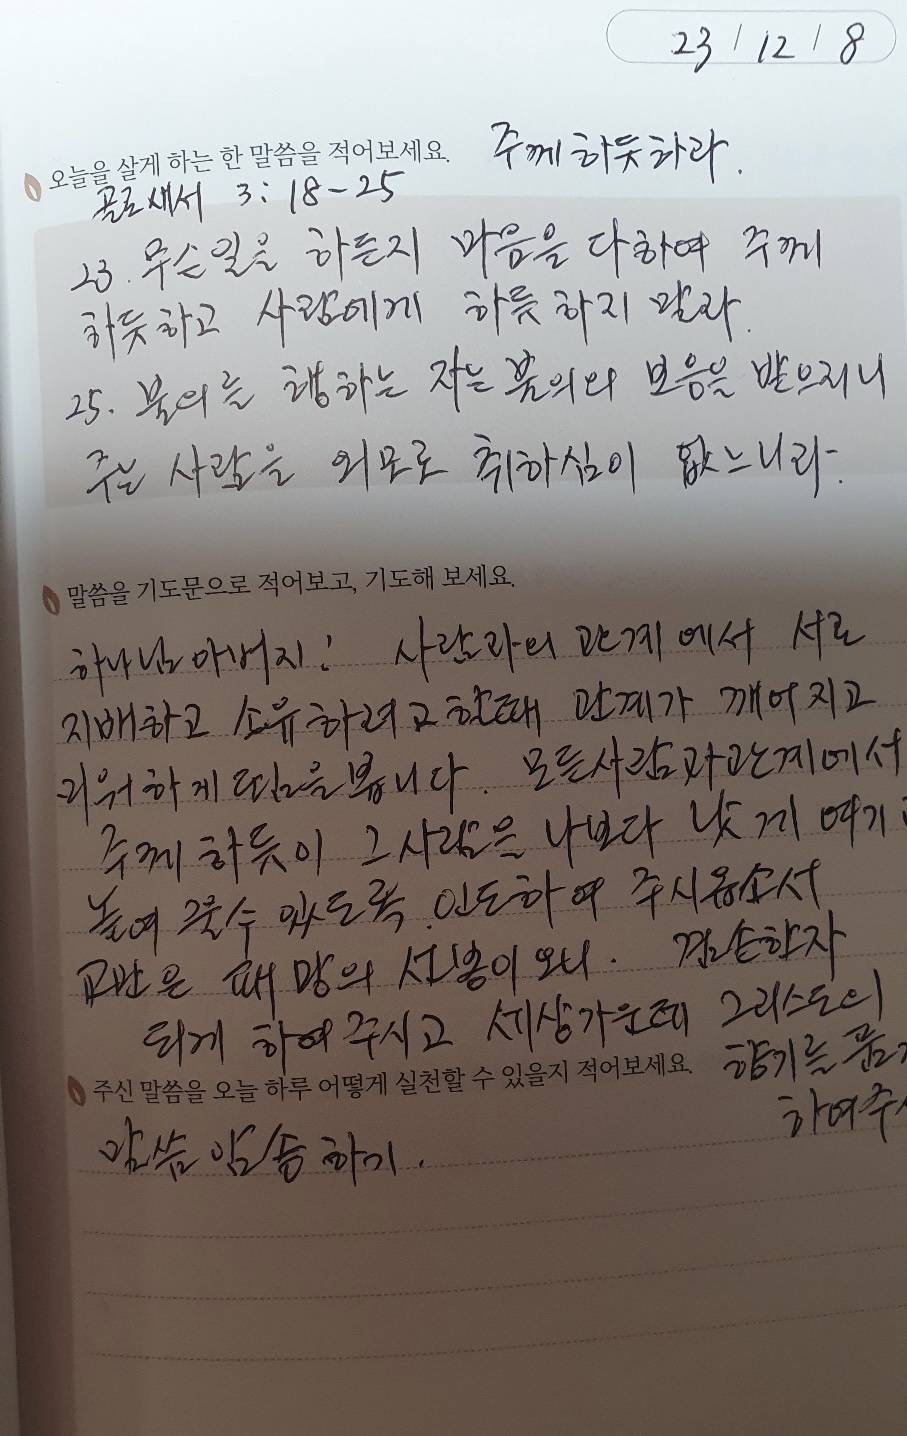 23 / 12 / 8
오늘을 살게 하는 한 말씀을 적어보세요. 주께 하듯하라.
골로새서 3:18-25
23. 무슨일을 하든지 마음을 다하여 주께
하듯하고 사람에게 하듯하지 말라.
25. 불의를 행하는 자는 불의의 보응을 받으리니
주는 사람을 외모로 취하심이 없느니라.
말씀을 기도문으로 적어보고, 기도해 보세요.
하나님 아버지! 사람과의 관계에서 서로
지배하고 소유하려고 할때 관계가 깨어지고
리워하게 됨을 봅니다. 모든사람과관계에서
주께 하듯이 그사람을 나보다 낫게 여기고
높여 줄수 있도록 인도하여 주시옵소서
교만은 패망의 선봉이오니. 겸손한자
되게 하여주시고 세상가운데 그리스도의
향기를 품게
하여주시
주신 말씀을 오늘 하루 어떻게 실천할 수 있을지 적어보세요.
말씀암송하기.